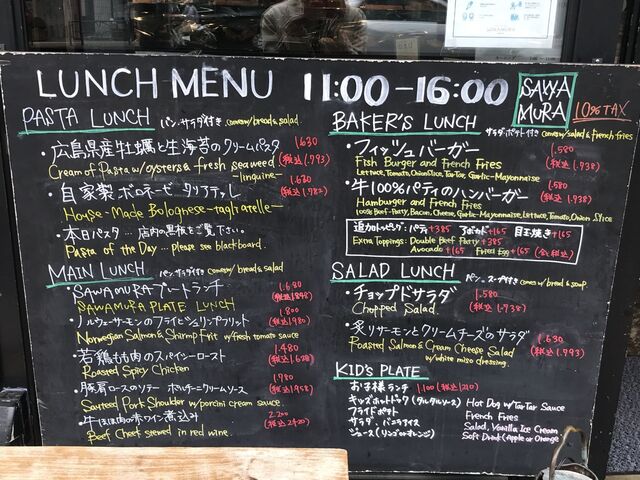 LUNCH MENU 11:00-16:00
SAWA MURA
10% TAX
PASTA LUNCH パン・サラダ付き comes w/bread & salad
・広島県産牡蠣と生海苔のクリームパスタ 1.630
Cream of Pasta w/oysters & fresh seaweed (税込1.793)
-linguine-
・自家製ボロネーゼ タリアテッレ 1.630
House-Made Bolognese-tagliatelle- (税込
・本日パスタ … 店内の黒板をご覧下さい。
Pasta of the Day … please see blackboard.
MAIN LUNCH パン・サラダ付き comes w/bread & salad
・SAWAMURAプレートランチ 1.680
SAWAMURA PLATE LUNCH (税込1848)
・ノルウェーサーモンのフライとシュリンプフリット 1.800
Norwegian Salmon & Shrimp Frit w/fresh tomato sauce (税込1980)
・若鶏もも肉のスパイシーロースト 1.480
Roasted Spicy Chicken (税込1.628)
・豚肩ロースのソテー ポルチーニクリームソース 1.780
Sauteed Pork Shoulder w/porcini cream sauce (税込1958)
・牛ほほ肉の赤ワイン煮込み 2.200
Beef Cheek stewed in red wine. (税込2420)
BAKER'S LUNCH サラダ・ポテト付き comes w/salad & french fries
・フィッシュバーガー 1.580
Fish Burger and French Fries (税込1.738)
Lettuce, Tomato, Onion Slice, Tartar, Garlic-Mayonnaise
・牛100%パティのハンバーガー 1.580
Hamburger and French Fries (税込1.738)
100% Beef-Patty, Bacon, Cheese, Garlic-Mayonnaise, Lettuce, Tomato, Onion Slice
追加トッピング:パティ +385 アボカド +165 目玉焼き +165
Extra Toppings: Double Beef Patty +385
Avocado +165 Fried Egg +165 (全て税込)
SALAD LUNCH パン・スープ付き comes w/bread & soup
・チョップドサラダ 1.580
Chopped Salad (税込1.738)
・炙りサーモンとクリームチーズのサラダ 1.630
Roasted Salmon & Cream Cheese Salad (税込1.793)
w/white miso dressing.
KID'S PLATE
お子様ランチ 1.100 (税込1210)
キッズホットドック(タルタルソース) Hot Dog w/Tartar Sauce
フライドポテト French Fries
サラダ、バニラアイス Salad, Vanilla Ice Cream
ジュース(リンゴorオレンジ) Soft Drink (Apple or Orange